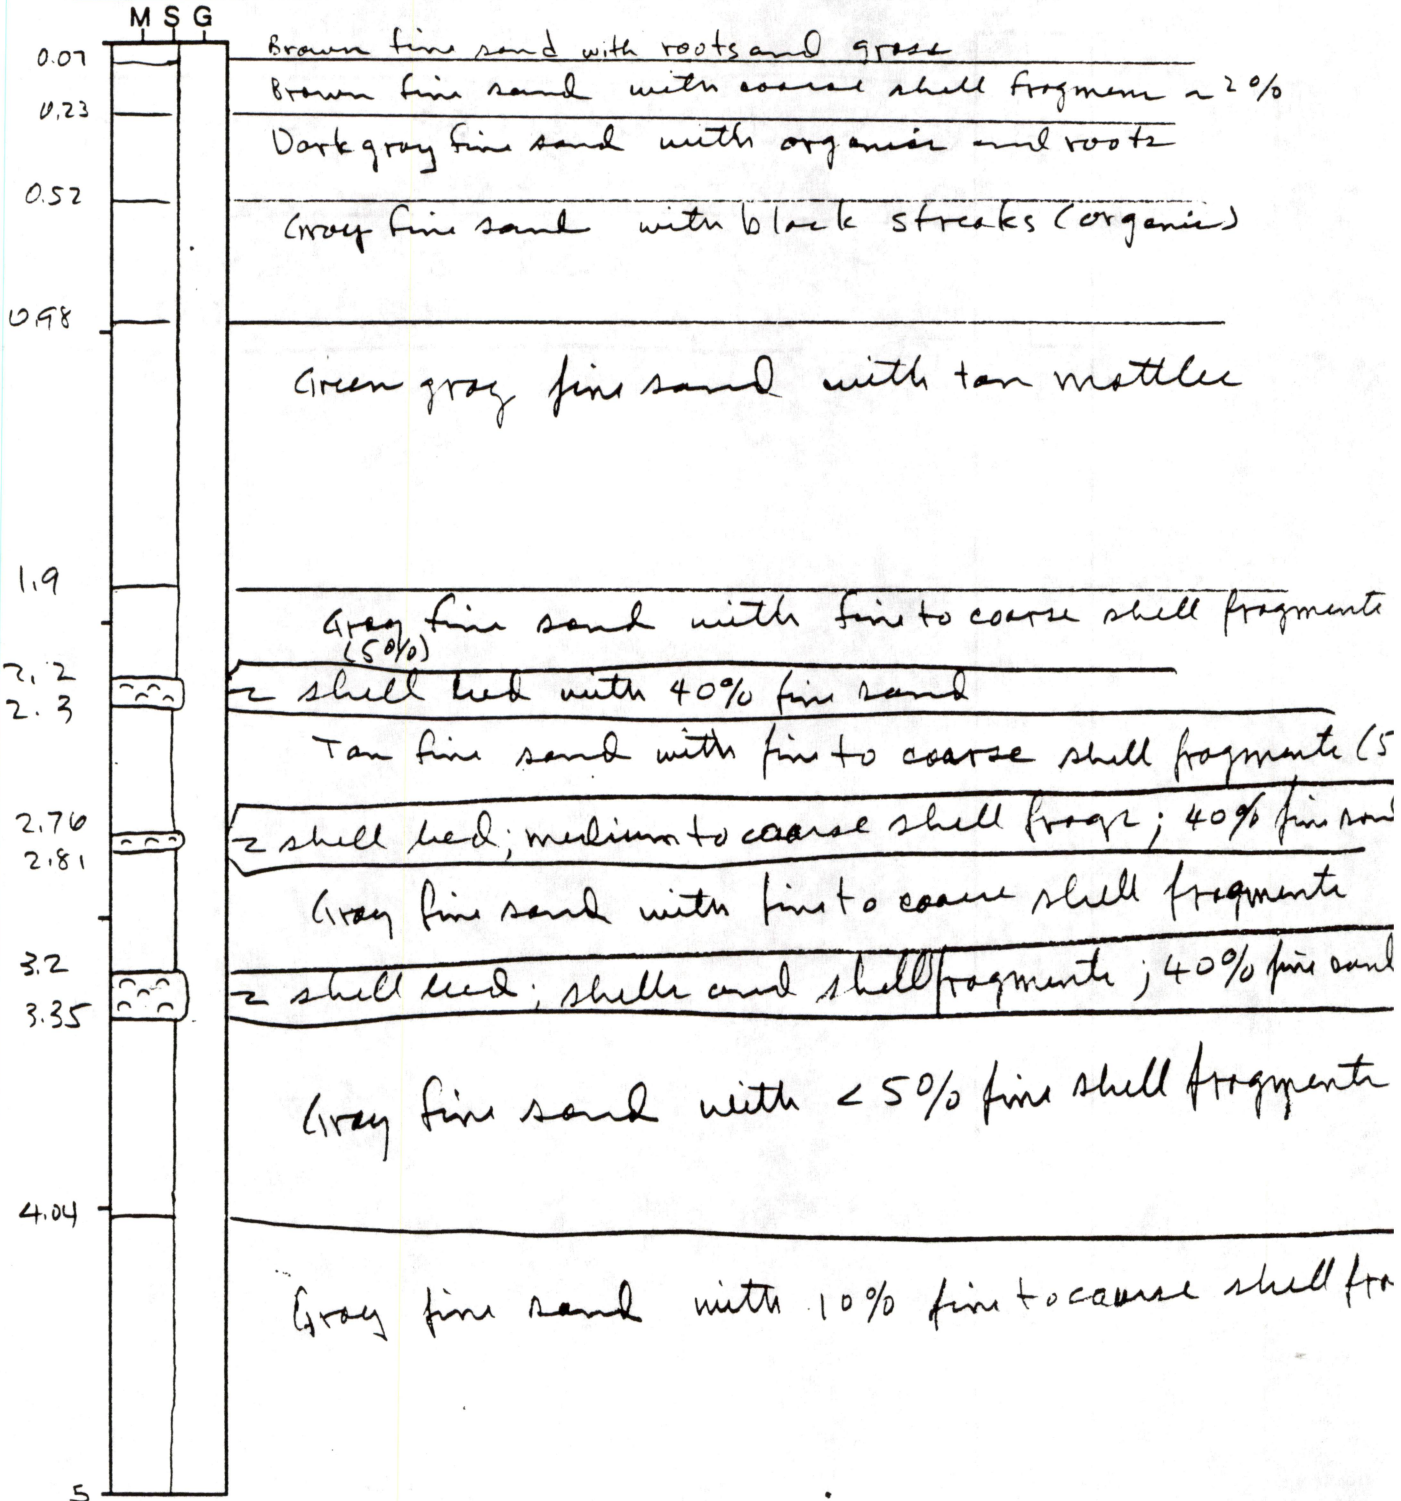 M S G
0.07 Brown fine sand with roots and grass
Brown fine sand with coarse shell fragmen ~ 2%
0.23
Dark gray fine sand with organics and roots
0.52
Gray fine sand with black streaks (organic)
0.98
Green gray fine sand with tan mottles
1.9
Gray fine sand with fine to coarse shell fragments
(5%)
2.2
shell bed with 40% fine sand
2.3
Tan fine sand with fine to coarse shell fragments (5
2.76
shell bed; medium to coarse shell frags; 40% fine san
2.81
Gray fine sand with fine to coarse shell fragments
3.2
shell bed; shells and shell fragments; 40% fine sand
3.35
Gray fine sand with < 5% fine shell fragments
4.04
Gray fine sand with 10% fine to coarse shell fra
5